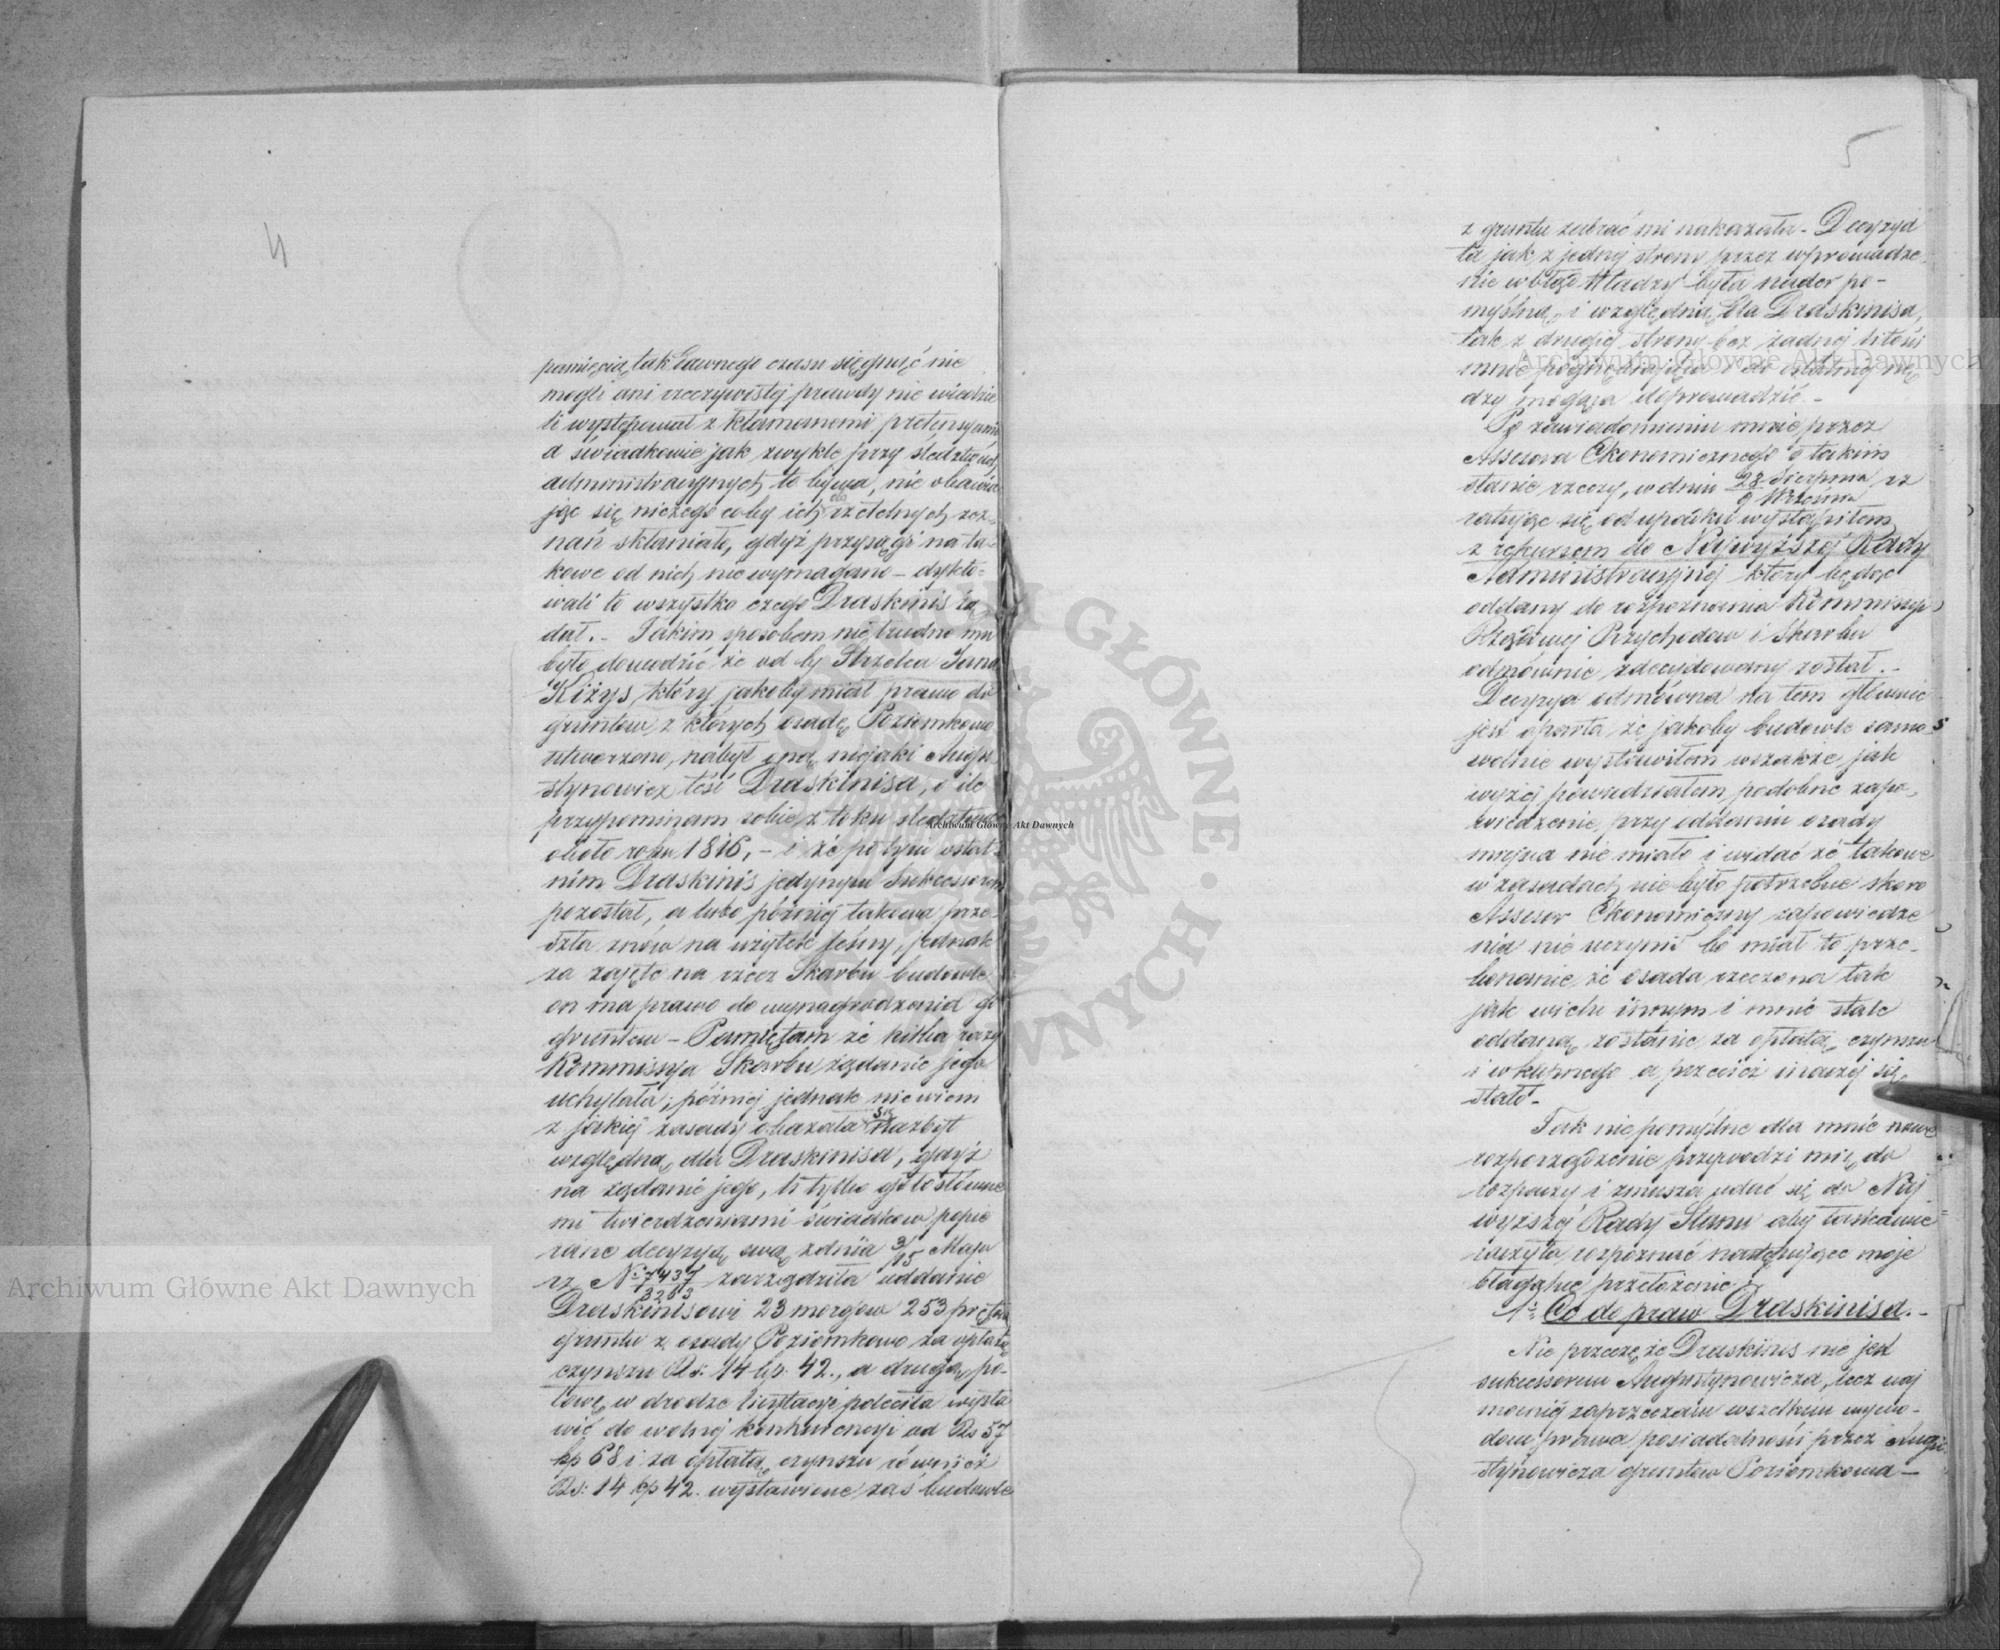 4
pamięcią tak dawnego czasu sięgnąć nie
mogli ani rzeczywistej prawdy nie wiedzie
li występował z kłamanemi pretensyami
a świadkowie jak zwykle przy śledztwach
administracyjnych to bywa, nie obawia
jąc się niczego coby ich do rzetelnych zez-
nań skłaniało, gdyż przysięgi na ta-
kowe od nich nie wymagano – dykto-
wali to wszystko czego Draskinis żą
dał. – Takim sposobem nie trudno mu
było dowodzić że od by Strzelca Jana
Kiżys, który jakoby miał prawo do
gruntów z których osadę Poziomkowo
utworzono, nabył one niejaki Augu
stynowicz teść Draskinisa, o ile
przypominam sobie z toku śledztwa
około roku 1816, – i że po tym ostat-
nim Draskinis jedynym Sukcessorem
pozostał, a lubo później takowa prze-
szła znów na użytek leśny, jednak
za zajęte na rzecz Skarbu budowle
on ma prawo do wynagrodzenia go
gruntem – Pamiętam że kilka razy
Kommissya Skarbu żądanie jego
uchylała; później jednak nie wiem
z jakiej zasady okazała się nazbyt
względną dla Draskinisa, gdyż
na żądanie jego, li tylko gołosłowne
mi twierdzeniami świadków popie
rane decyzyą swą z dnia 3/15 Maja
rz № 7437/3263 zarządziła oddanie
Draskinisowi 23 morgów 253 prętów
gruntu z osady Poziomkowo za opłatą
czynszu Rs: 14 kp. 42., a drugą po-
łowę w drodze licytacyi poleciła wysta
wić do wolnej konkurencyi od Rs 57
kp 68 i za opłatą czynszu również
Rs: 14 kp 42. wystawione zaś budowle
5
z gruntu zabrać mi nakazała – Decyzya
ta jak z jednej strony przez wprowadze
nie w błąd Władzy była nader po-
myślną i względną dla Draskinisa,
tak z drugiej strony bez żadnej litości
mnie i do ostatniej nę
dzy mogąca doprowadzić. –
Po zawiadomieniu mnie przez
Assesora Ekonomicznego o takim
stanie rzeczy, w dniu 28 Sierpnia/9 Września rz
ratując się od upadku wystąpiłem
z rekursem do Najwyższej Rady
Administracyjnej który będąc
oddany do rozpoznania Kommissyi
Rządowej Przychodów i Skarbu
odmównie zdecydowany został. –
Decyzya odmówna na tem głównie
jest oparta, że jakoby budowle samo
wolnie wystawiłem wszakże, jak
wyżej powiedziałem, podobne zapo-
wiedzenie przy oddaniu osady
miejsca nie miało i widać że takowe
w zasadach nie było potrzebne skoro
Assesor Ekonomiczny zapowiedze
nia nie uczynił bo miał to prze-
konanie, że osada rzeczona tak
jak wielu innym i mnie stale
oddaną zostanie za opłatą czynszu
i wkupnego a przecież inaczej się
stało –
Tak niepomyślne dla mnie nowe
rozporządzenie przywodzi mię do
rozpaczy i zmusza udać się do Naj
wyższej Rady Stanu aby łaskawie
raczyła rozpoznać następujące moje
błagalne przełożenie
1º Co do praw Draskinisa. –
Nie przeczę że Draskinis nie jest
sukcessorem Augustynowicza, lecz naj
mocniej zaprzeczam wszelkim wywo-
dom prawa posiadalności przez Augu
stynowicza gruntów Poziomkowa –
Archiwum Główne Akt Dawnych
Archiwum Główne Akt Dawnych
Archiwum Główne Akt Dawnych